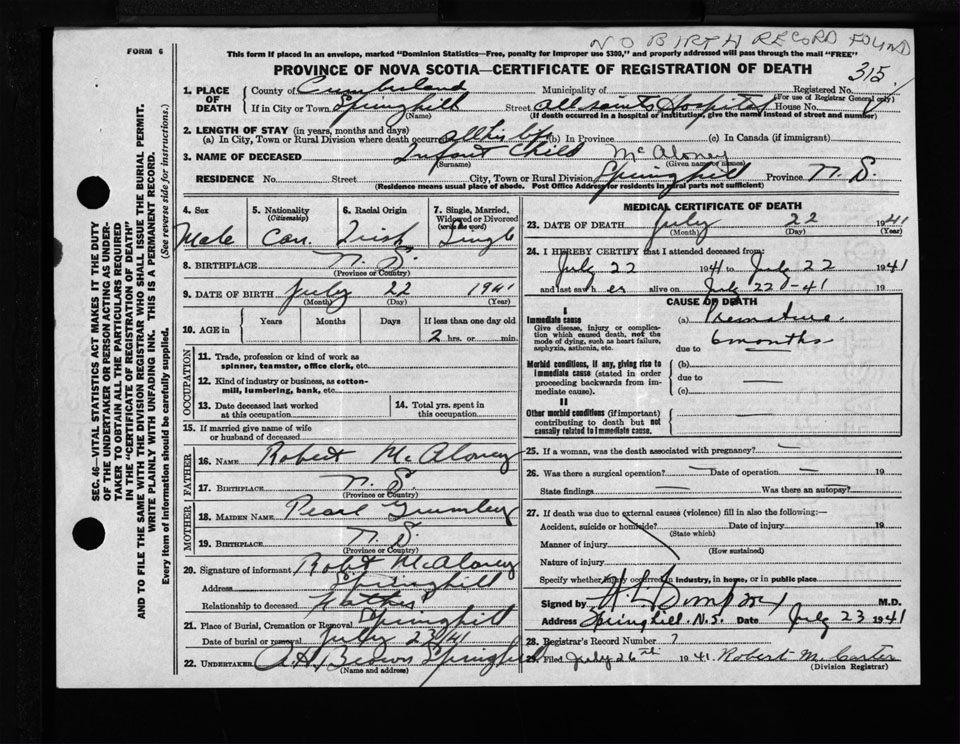 NO BIRTH RECORD FOUND
FORM 6
This form if placed in an envelope, marked "Dominion Statistics—Free, penalty for improper use $300," and properly addressed will pass through the mail "FREE"
PROVINCE OF NOVA SCOTIA—CERTIFICATE OF REGISTRATION OF DEATH
315
1. PLACE OF DEATH
County of Cumberland Municipality of Registered No.
(For use of Registrar General only)
If in City or Town Springhill Street All Saints Hospital House No.
(Name) (If death occurred in a hospital or institution, give the name instead of street and number)
2. LENGTH OF STAY (in years, months and days)
(a) In City, Town or Rural Division where death occurred all his life (b) in Province (c) in Canada (if immigrant)
3. NAME OF DECEASED Infant Child McAloney
(Surname) (Given name or names)
RESIDENCE No. Street City, Town or Rural Division Springhill Province N.S.
(Residence means usual place of abode. Post Office Address for residents in rural parts not sufficient)
4. Sex Male
5. Nationality (Citizenship) Can.
6. Racial Origin Irish
7. Single, Married, Widowed or Divorced (write the word) Single
8. BIRTHPLACE N.S.
(Province or Country)
9. DATE OF BIRTH July 22 1941
(Month) (Day) (Year)
10. AGE in Years Months Days If less than one day old
2 hrs. or min.
OCCUPATION
11. Trade, profession or kind of work as spinner, teamster, office clerk, etc.
12. Kind of industry or business, as cotton-mill, lumbering, bank, etc.
13. Date deceased last worked at this occupation
14. Total yrs. spent in this occupation
15. If married give name of wife or husband of deceased
FATHER
16. NAME Robert McAloney
17. BIRTHPLACE N.S.
(Province or Country)
MOTHER
18. MAIDEN NAME Pearl
19. BIRTHPLACE N.S.
(Province or Country)
20. Signature of informant Robt McAloney
Address Springhill
Relationship to deceased Father
21. Place of Burial, Cremation or Removal Springhill
Date of burial or removal July 23/41
22. UNDERTAKER A.H. Brown Springhill
(Name and address)
MEDICAL CERTIFICATE OF DEATH
23. DATE OF DEATH July 22 1941
(Month) (Day) (Year)
24. I HEREBY CERTIFY that I attended deceased from:
July 22 1941 to July 22 1941
and last saw h er alive on July 22-41
CAUSE OF DEATH
I
Immediate cause
Give disease, injury or complication which caused death, not the mode of dying, such as heart failure, asphyxia, asthenia, etc.
(a) Premature
due to 6 months
Morbid conditions, if any, giving rise to immediate cause (stated in order proceeding backwards from immediate cause).
(b)
due to —
(c)
II
Other morbid conditions (if important) contributing to death but not causally related to immediate cause.
25. If a woman, was the death associated with pregnancy? —
26. Was there a surgical operation? — Date of operation — 19
State findings — Was there an autopsy? —
27. If death was due to external causes (violence) fill in also the following:—
Accident, suicide or homicide? Date of injury 19
(State which)
Manner of injury
(How sustained)
Nature of injury
Specify whether injury occurred in industry, in home, or in public place
Signed by M.D.
Address Springhill. N.S. Date July 23 1941
28. Registrar's Record Number 7
29. Filed July 26th 1941 Robert M. Carter
(Division Registrar)
SEC. 46—VITAL STATISTICS ACT MAKES IT THE DUTY
OF THE UNDERTAKER OR PERSON ACTING AS UNDERTAKER TO OBTAIN ALL THE PARTICULARS REQUIRED
IN THE "CERTIFICATE OF REGISTRATION OF DEATH"
AND TO FILE THE SAME WITH THE DIVISION REGISTRAR WHO SHALL ISSUE THE BURIAL PERMIT.
WRITE PLAINLY WITH UNFADING INK. THIS IS A PERMANENT RECORD.
Every item of information should be carefully supplied. (See reverse side for instructions.)